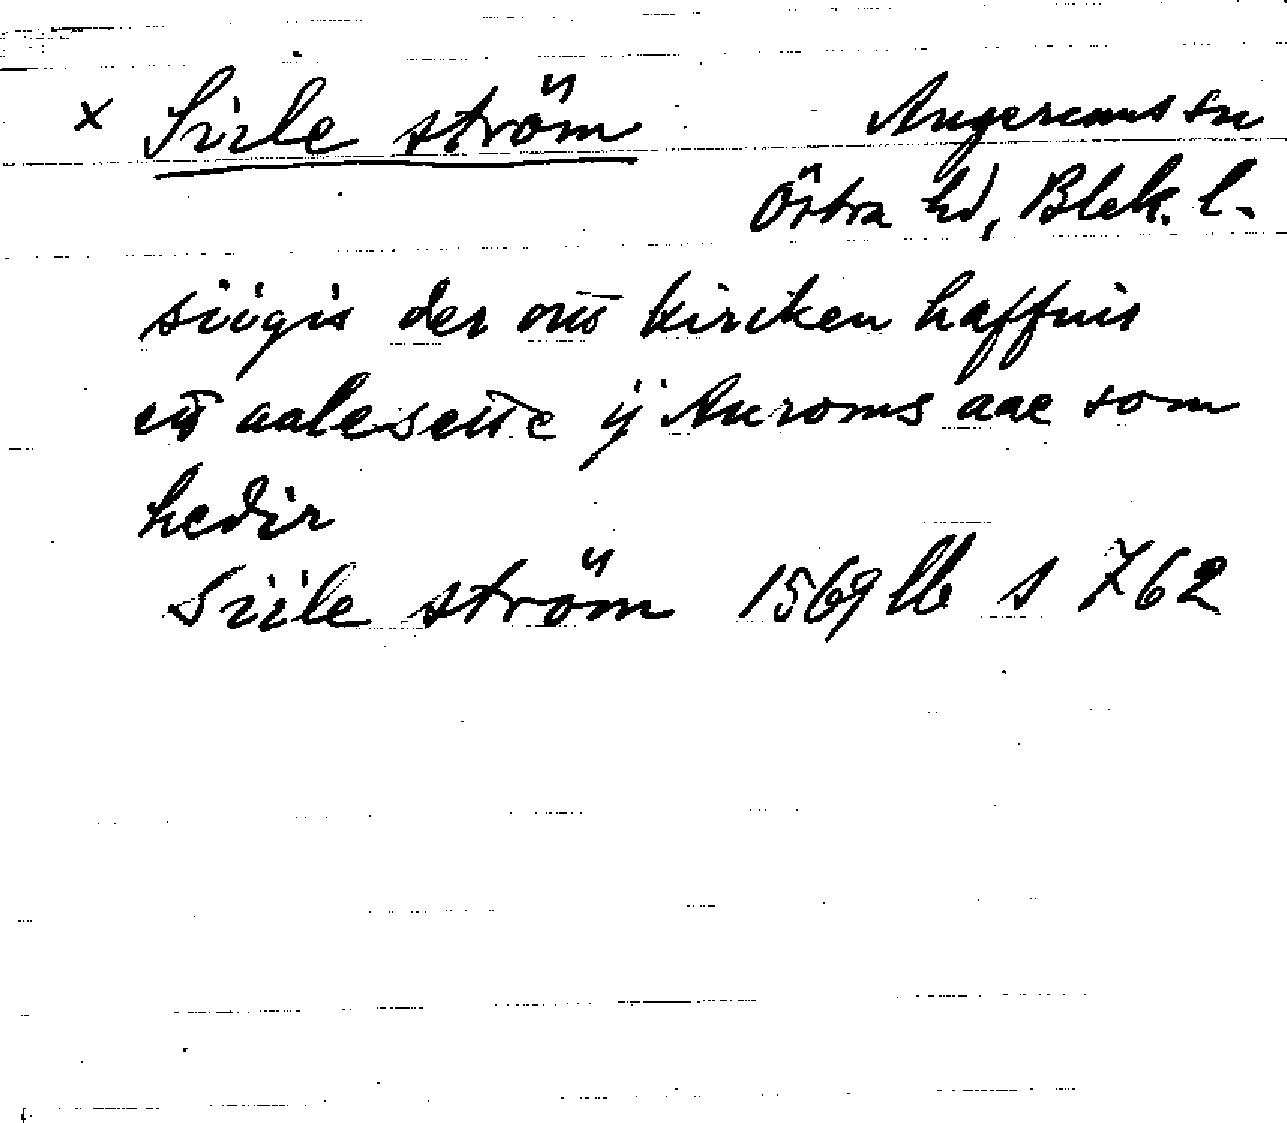 × Siile ström Angerums sn
Östra hd, Blek. l.
siigis der om̅ kircken haffuis
ett aalesette ij Auroms aae som
hedir
Siile ström 1569 lb s 762